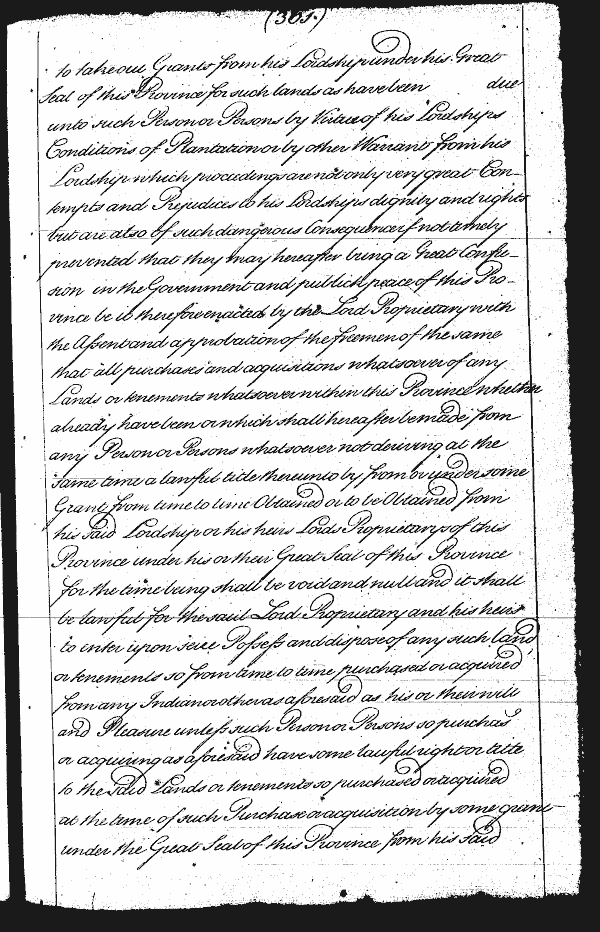 (365.)
to take out Grants from his Lordship under his Great
Seal of this Province for such lands as have been due
unto such Person or Persons by Virtue of his Lordships
Conditions of Plantation or by other Warrant from his
Lordship which proceedings are not only very great Con-
tempts and Prejudices to his Lordships dignity and rights
but are also of such dangerous Consequence if not timely
prevented that they may hereafter bring a Great Confu-
sion in the Government and publick peace of this Pro-
vince be it therefore enacted by the Lord Proprietary with
the Assent and approbation of the freemen of the same
that all purchases and acquisitions whatsoever of any
Lands or tenements whatsoever within this Province whether
already have been or which shall hereafter be made from
any Person or Persons whatsoever not deriving at the
same time a lawful title thereunto by from or under some
Grant from time to time Obtained or to be Obtained from
his said Lordship or his heirs Lords Proprietarys of this
Province under his or their Great Seal of this Province
for the time being shall be void and null and it shall
be lawful for the said Lord Proprietary and his heirs
to enter upon seize Possess and dispose of any such land
or tenements so from time to time purchased or acquired
from any Indian or other as aforesaid as his or their will
and Pleasure unless such Person or Persons so purchas'
or acquiring as aforesaid have some lawful right or title
to the said Lands or tenements so purchased or acquired
at the time of such Purchase or acquisition by some grant
under the Great Seal of this Province from his said